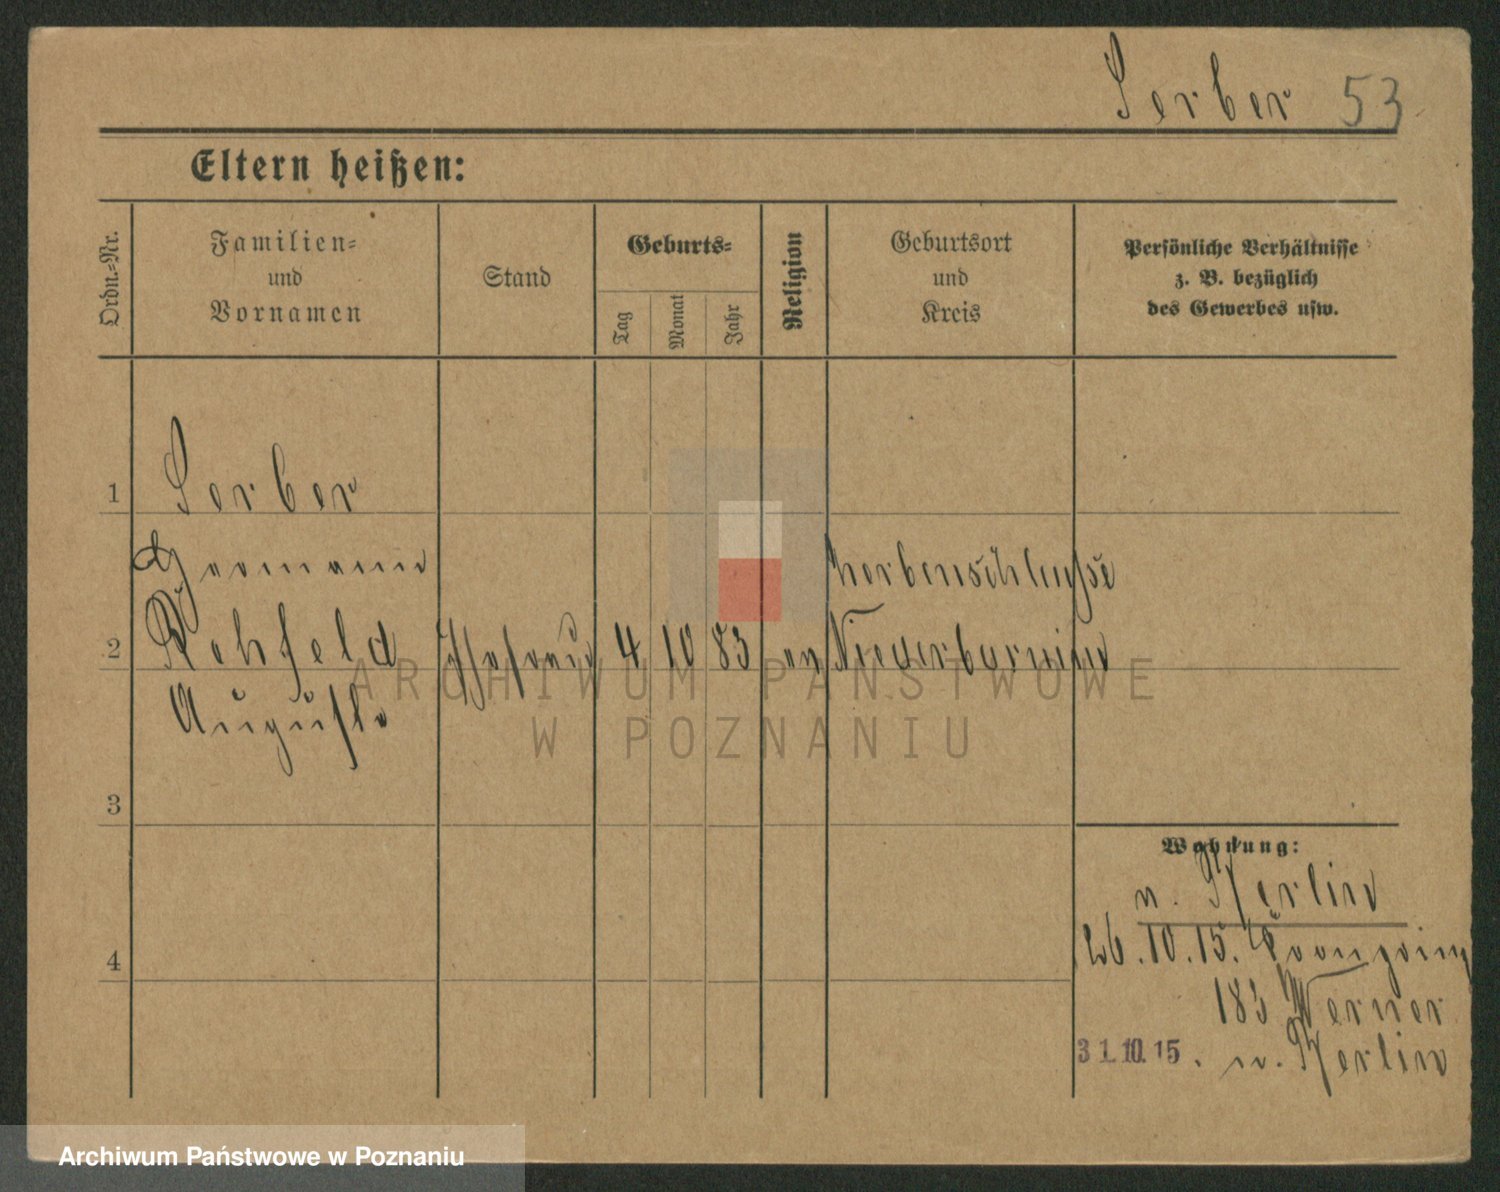 Serber 53
Eltern heißen:
Ordn.-Nr.
Familien-
und
Vornamen
Stand
Geburts-
Tag
Monat
Jahr
Religion
Geburtsort
und
Kreis
Persönliche Verhältnisse
z. B. bezüglich
des Gewerbes usw.
1 Serber
Hermann
2 Rehfeld Ehefrau 4 10 83 ev Niederbarnim
Auguste
3
4
Wohnung:
n. Berlin
26.10.15.
183 Werner
31.10.15. n. Berlin
ARCHIWUM PAŃSTWOWE
W POZNANIU
Archiwum Państwowe w Poznaniu